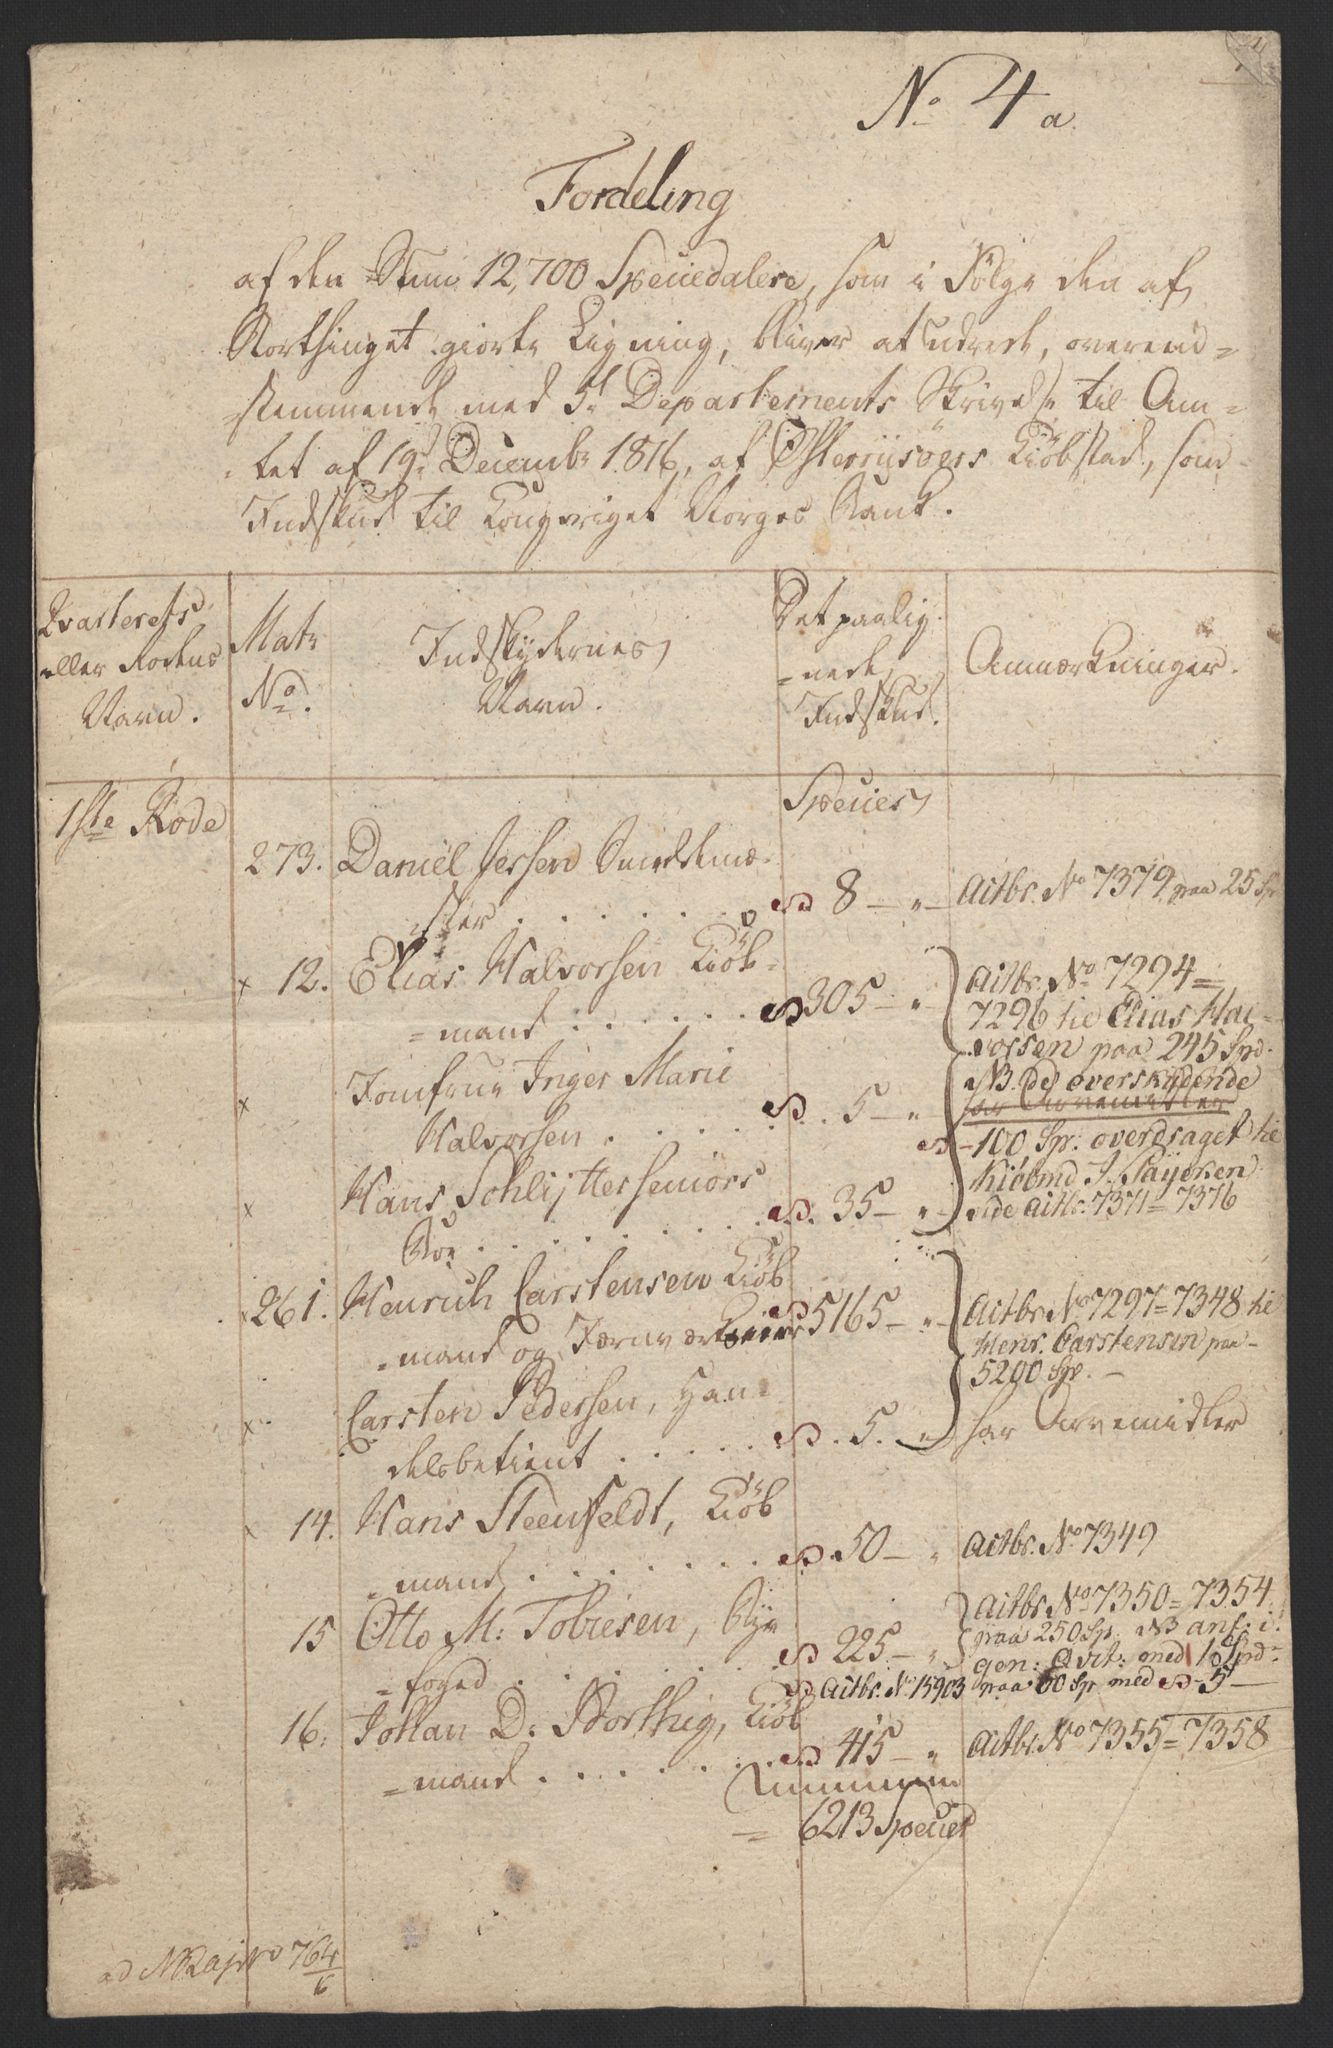 No 4 a.
Fordeling
af den Sum 12,700 Speciedalere, som i Følge den af
Storthinget giorte Ligning, bliver at udrede, overeens=
=stemmende med 5te Departements Skrivelse til Am=
=tet af 19de Decembr 1816, af Østerriisøers Kiøbstad, som
Indskud til Kongeriget Norges Bank.
Qvarterets
eller Rodens
Navn.
Matr
No.
Indskydernes
Navn.
Det paalig=
=nede
Indskud.
Anmærkninger.
Specier
1ste Rode
273. Daniel Jessen Smeddeme=
=ster . . . . . . 8 — " — Actbr. No 7379 paa 25 Sp
x 12. Elias Halvorsen Kiøb=
=mand . . . . . . 305 — " —
Actbr. No 7294=
7296 til Elias Hal=
vorsen paa 245 Spd.
x Jomfrue Inger Marie
Halvorsen . . . . . 5 — "
NB. de overskydende
har Arvemidler
100 Sp: overdraget til
Kiøbmd J.
vide Actbr. 7371=7376
x Hans Schlytter seniors
Boe . . . . . . . 35 — " —
x 261. Henrich Carstensen Kiøb
=mand og Jernværkseier 5165 — " —
Actbr. No 7297=7348 til
Henr. Carstensen paa
5200 Sp. —
x Carsten Pedersen, Han=
delsbetient . . . . . 5. " har Arvemidler
x 14. Hans Steenfeldt, Kiøb
=mand . . . . . . 50 — " Actbr. No 7349
15 Otto M: Tobiesen, Bye
=foged . . . . . . 225 — "
Actbr. No 7350=7354
paa 250 Sp. NB anf: i
gen: Qvit: med 10 Spd=
Actbr. No 15903 paa 60 Sp med 5 —
16. Johan D: Northig, Kiøb
=mand . . . . . . 415 — " Actbr. No 7355=7358
= 6213 Specier
ad 764/6